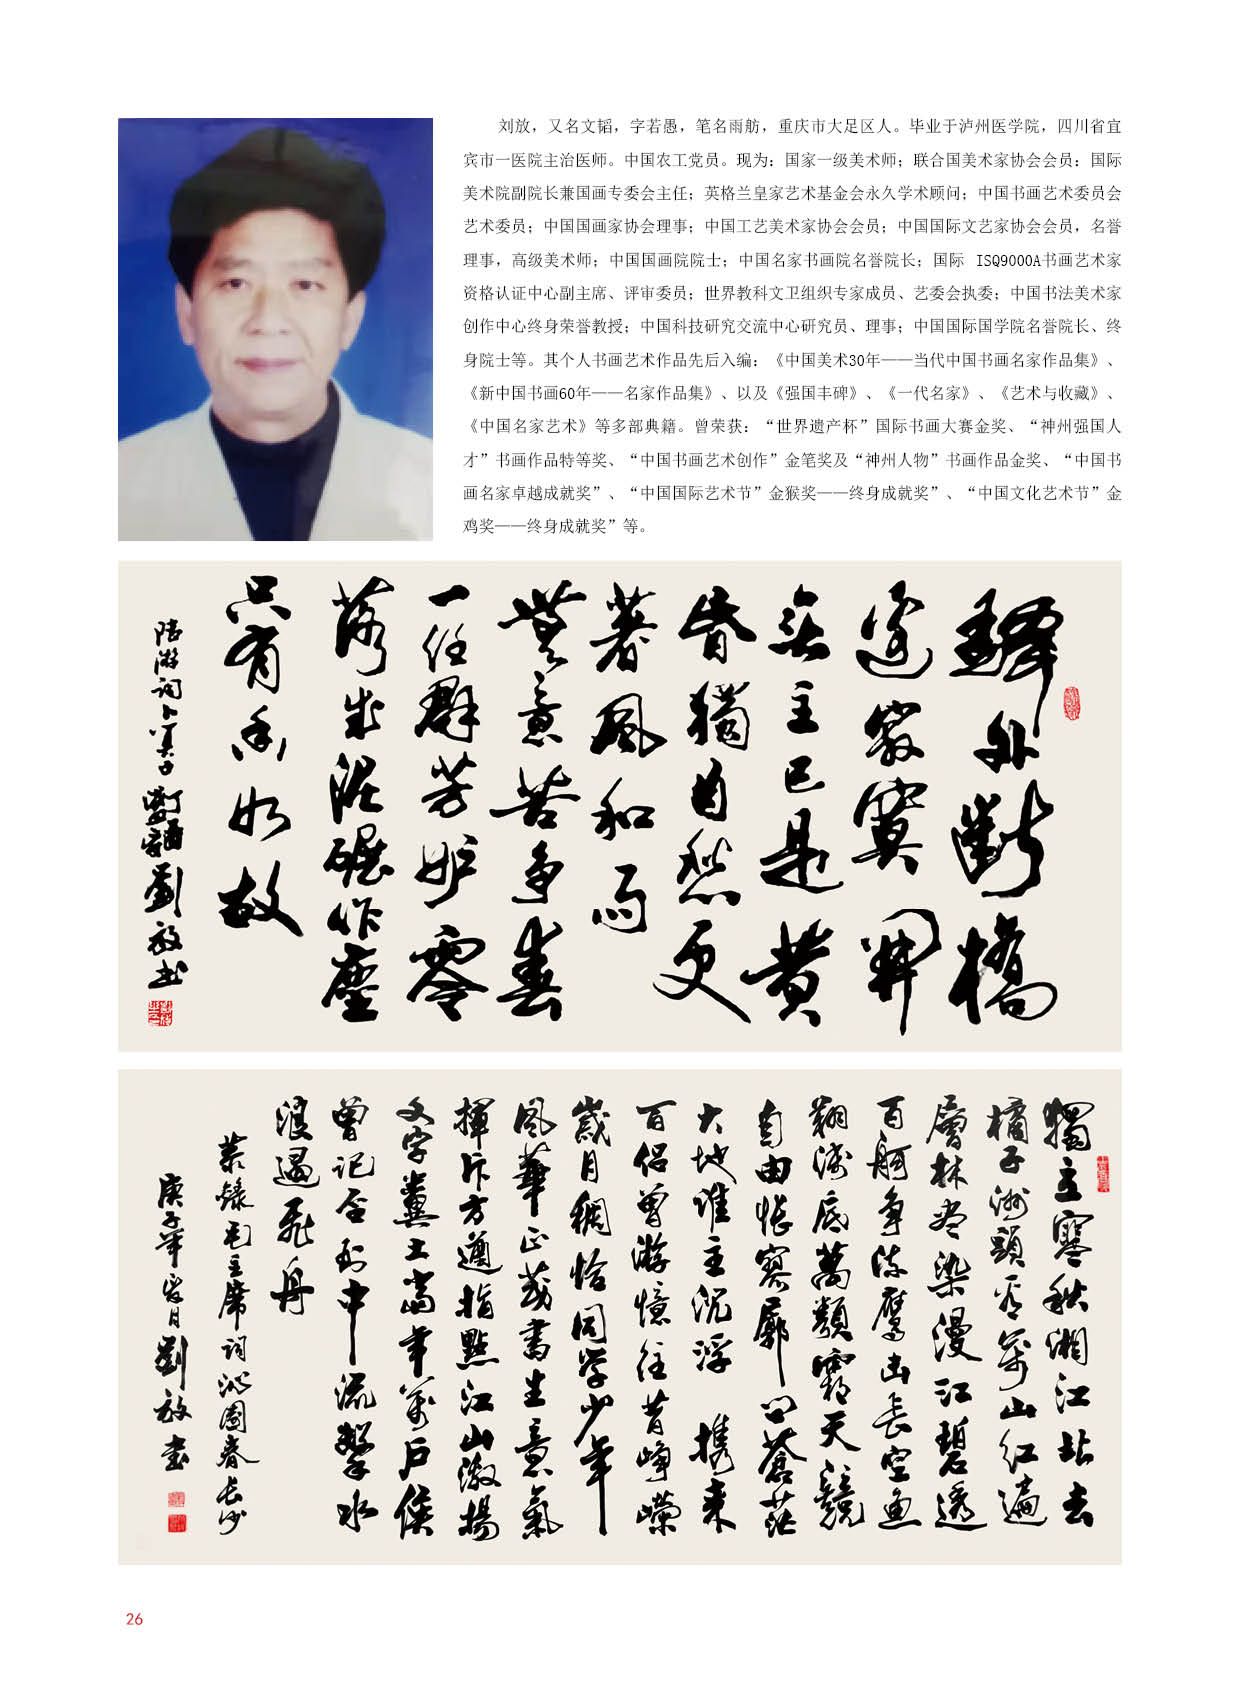 刘放，又名文韬，字若愚，笔名雨舫，重庆市大足区人。毕业于泸州医学院，四川省宜
宾市一医院主治医师。中国农工党员。现为：国家一级美术师；联合国美术家协会会员：国际
美术院副院长兼国画专委会主任；英格兰皇家艺术基金会永久学术顾问；中国书画艺术委员会
艺术委员；中国国画家协会理事；中国工艺美术家协会会员；中国国际文艺家协会会员，名誉
理事，高级美术师；中国国画院院士；中国名家书画院名誉院长；国际 ISQ9000A书画艺术家
资格认证中心副主席、评审委员；世界教科文卫组织专家成员、艺委会执委；中国书法美术家
创作中心终身荣誉教授；中国科技研究交流中心研究员、理事；中国国际国学院名誉院长、终
身院士等。其个人书画艺术作品先后入编：《中国美术30年——当代中国书画名家作品集》、
《新中国书画60年——名家作品集》、以及《强国丰碑》、《一代名家》、《艺术与收藏》、
《中国名家艺术》等多部典籍。曾荣获：“世界遗产杯”国际书画大赛金奖、“神州强国人
才”书画作品特等奖、“中国书画艺术创作”金笔奖及“神州人物”书画作品金奖、“中国书
画名家卓越成就奖”、“中国国际艺术节”金猴奖——终身成就奖”、“中国文化艺术节”金
鸡奖——终身成就奖”等。
驛外斷橋
邊寂寞開
無主已是黄
昏獨自愁更
著風和雨
無意苦争春
一任群芳妒零
落成泥碾作塵
只有香如故
陸游詞卜算子
劉放书
獨立寒秋湘江北去
橘子洲頭看萬山红遍
層林尽染漫江碧透
百舸争流鹰击長空魚
翔淺底萬類霜天競
自由悵寥廓问蒼茫
大地谁主沉浮 携来
百侣曾游憶往昔峥嶸
歲月稠恰同学少年
風華正茂書生意氣
揮斥方遒指點江山激揚
文字糞土當年萬户侯
曾记否到中流擊水
浪遏飛舟
恭錄毛主席詞沁園春长沙
庚子年 月劉放书
26